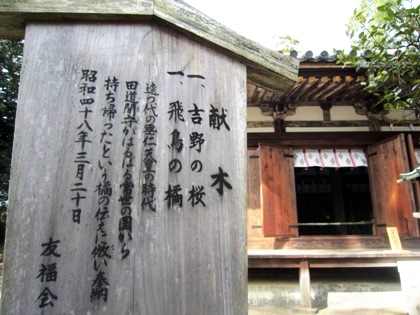 献木
一、吉野の桜
一、飛鳥の橘
遠つ代の垂仁天皇の時代
田道間守がはるばる常世の国から
持ち帰ったという橘の伝えに倣い奉納
昭和四十八年三月二十日
友福会